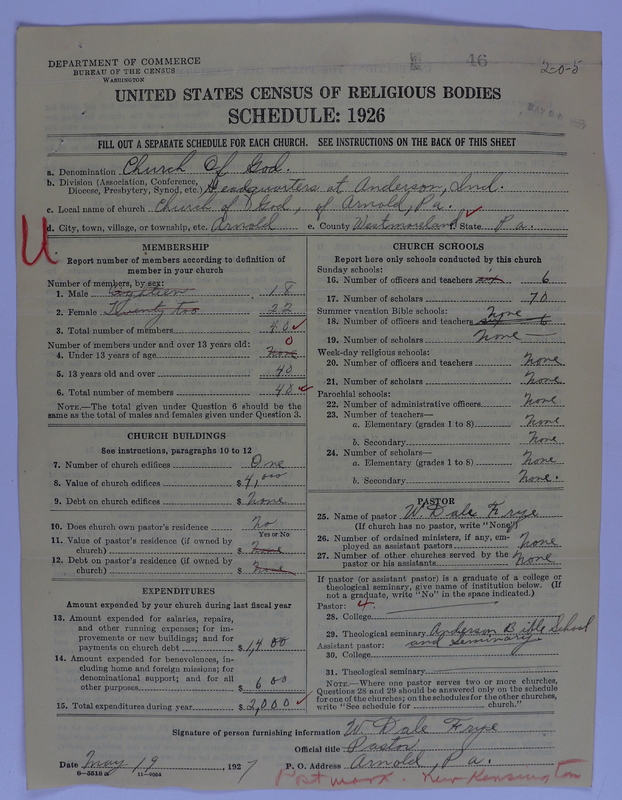 DEPARTMENT OF COMMERCE
BUREAU OF THE CENSUS
WASHINGTON
46
2-0-5
UNITED STATES CENSUS OF RELIGIOUS BODIES
SCHEDULE: 1926
FILL OUT A SEPARATE SCHEDULE FOR EACH CHURCH. SEE INSTRUCTIONS ON THE BACK OF THIS SHEET
a. Denomination Church Of God.
b. Division (Association, Conference, Diocese, Presbytery, Synod, etc.) Headquarters at Anderson, Ind.
c. Local name of church Church of God, of Arnold, Pa.
d. City, town, village, or township, etc. Arnold e. County Westmoreland f. State Pa.
U
MEMBERSHIP
Report number of members according to definition of
member in your church
Number of members, by sex:
1. Male Eighteen 18
2. Female Twenty two 22
3. Total number of members 40
Number of members under and over 13 years old:
0
4. Under 13 years of age None
5. 13 years old and over 40
6. Total number of members 40
NOTE.—The total given under Question 6 should be
same as the total of males and females given under Question 3.
CHURCH BUILDINGS
See instructions, paragraphs 10 to 12
7. Number of church edifices One
8. Value of church edifices $ 4,000
9. Debt on church edifices $ None
10. Does church own pastor's residence No
Yes or No
11. Value of pastor's residence (if owned by
church) $ None
12. Debt on pastor's residence (if owned by
church) $ None
EXPENDITURES
Amount expended by your church during last fiscal year
13. Amount expended for salaries, repairs,
and other running expenses; for im-
provements or new buildings; and for
payments on church debt $ 1,400
14. Amount expended for benevolences, in-
cluding home and foreign missions; for
denominational support; and for all
other purposes $ 600
15. Total expenditures during year $ 2,000
CHURCH SCHOOLS
Report here only schools conducted by this church
Sunday schools:
16. Number of officers and teachers six 6
17. Number of scholars 70
Summer vacation Bible schools: None
18. Number of officers and teachers
19. Number of scholars None
Week-day religious schools:
20. Number of officers and teachers None
21. Number of scholars None
Parochial schools:
22. Number of administrative officers None
23. Number of teachers—
a. Elementary (grades 1 to 8) None
b. Secondary None
24. Number of scholars—
a. Elementary (grades 1 to 8) None
b. Secondary None.
PASTOR
25. Name of pastor W. Dale Frye
(If church has no pastor, write "None")
26. Number of ordained ministers, if any, em-
ployed as assistant pastors None
27. Number of other churches served by the
pastor or his assistants None
If pastor (or assistant pastor) is a graduate of a college or
theological seminary, give name of institution below. (If
not a graduate, write "No" in the space indicated.)
Pastor: 4.
28. College
29. Theological seminary Anderson Bible School
Assistant pastor: and Seminary
30. College
31. Theological seminary
NOTE.—Where one pastor serves two or more churches,
Questions 28 and 29 should be answered only on the schedule
for one of the churches; on the schedules for the other churches,
write "See schedule for church."
Signature of person furnishing information W. Dale Frye
Official title Pastor
Date May 19, 1927 P. O. Address Arnold, Pa.
8-5518 a 11-9064
Postmark. New Kensington